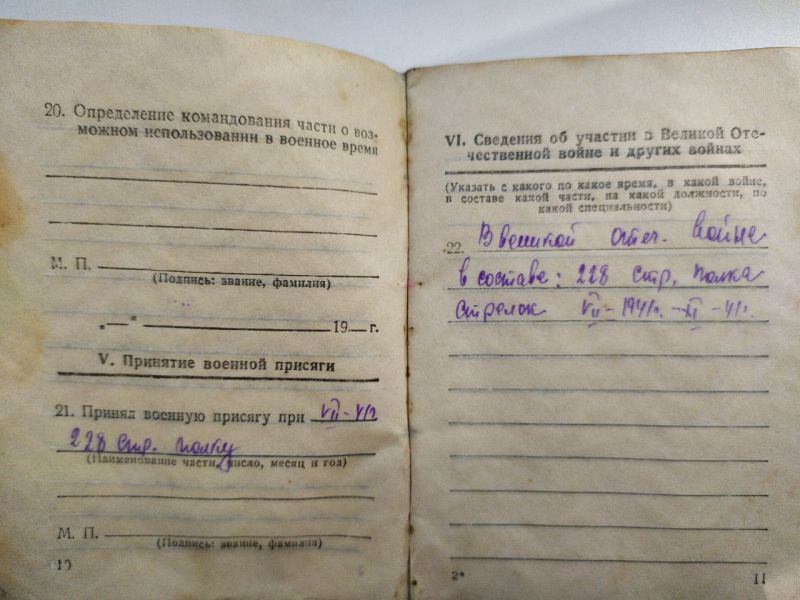 20. Определение командования части о воз-
можном использовании в военное время
М. П.
(Подпись: звание, фамилия)
„—“ 19 г.
V. Принятие военной присяги
21. Принял военную присягу при VII-41г
228 стр. полку
(Наименование части, число, месяц и год)
М. П.
(Подпись: звание, фамилия)
10
VI. Сведения об участии в Великой Оте-
чественной войне и других войнах
(Указать с какого по какое время, в какой войне,
в составе какой части, на какой должности, по
какой специальности)
22. В великой отеч. войне
в составе: 228 стр. полка
стрелок VII-1941г. - XI-41г.
2*
11